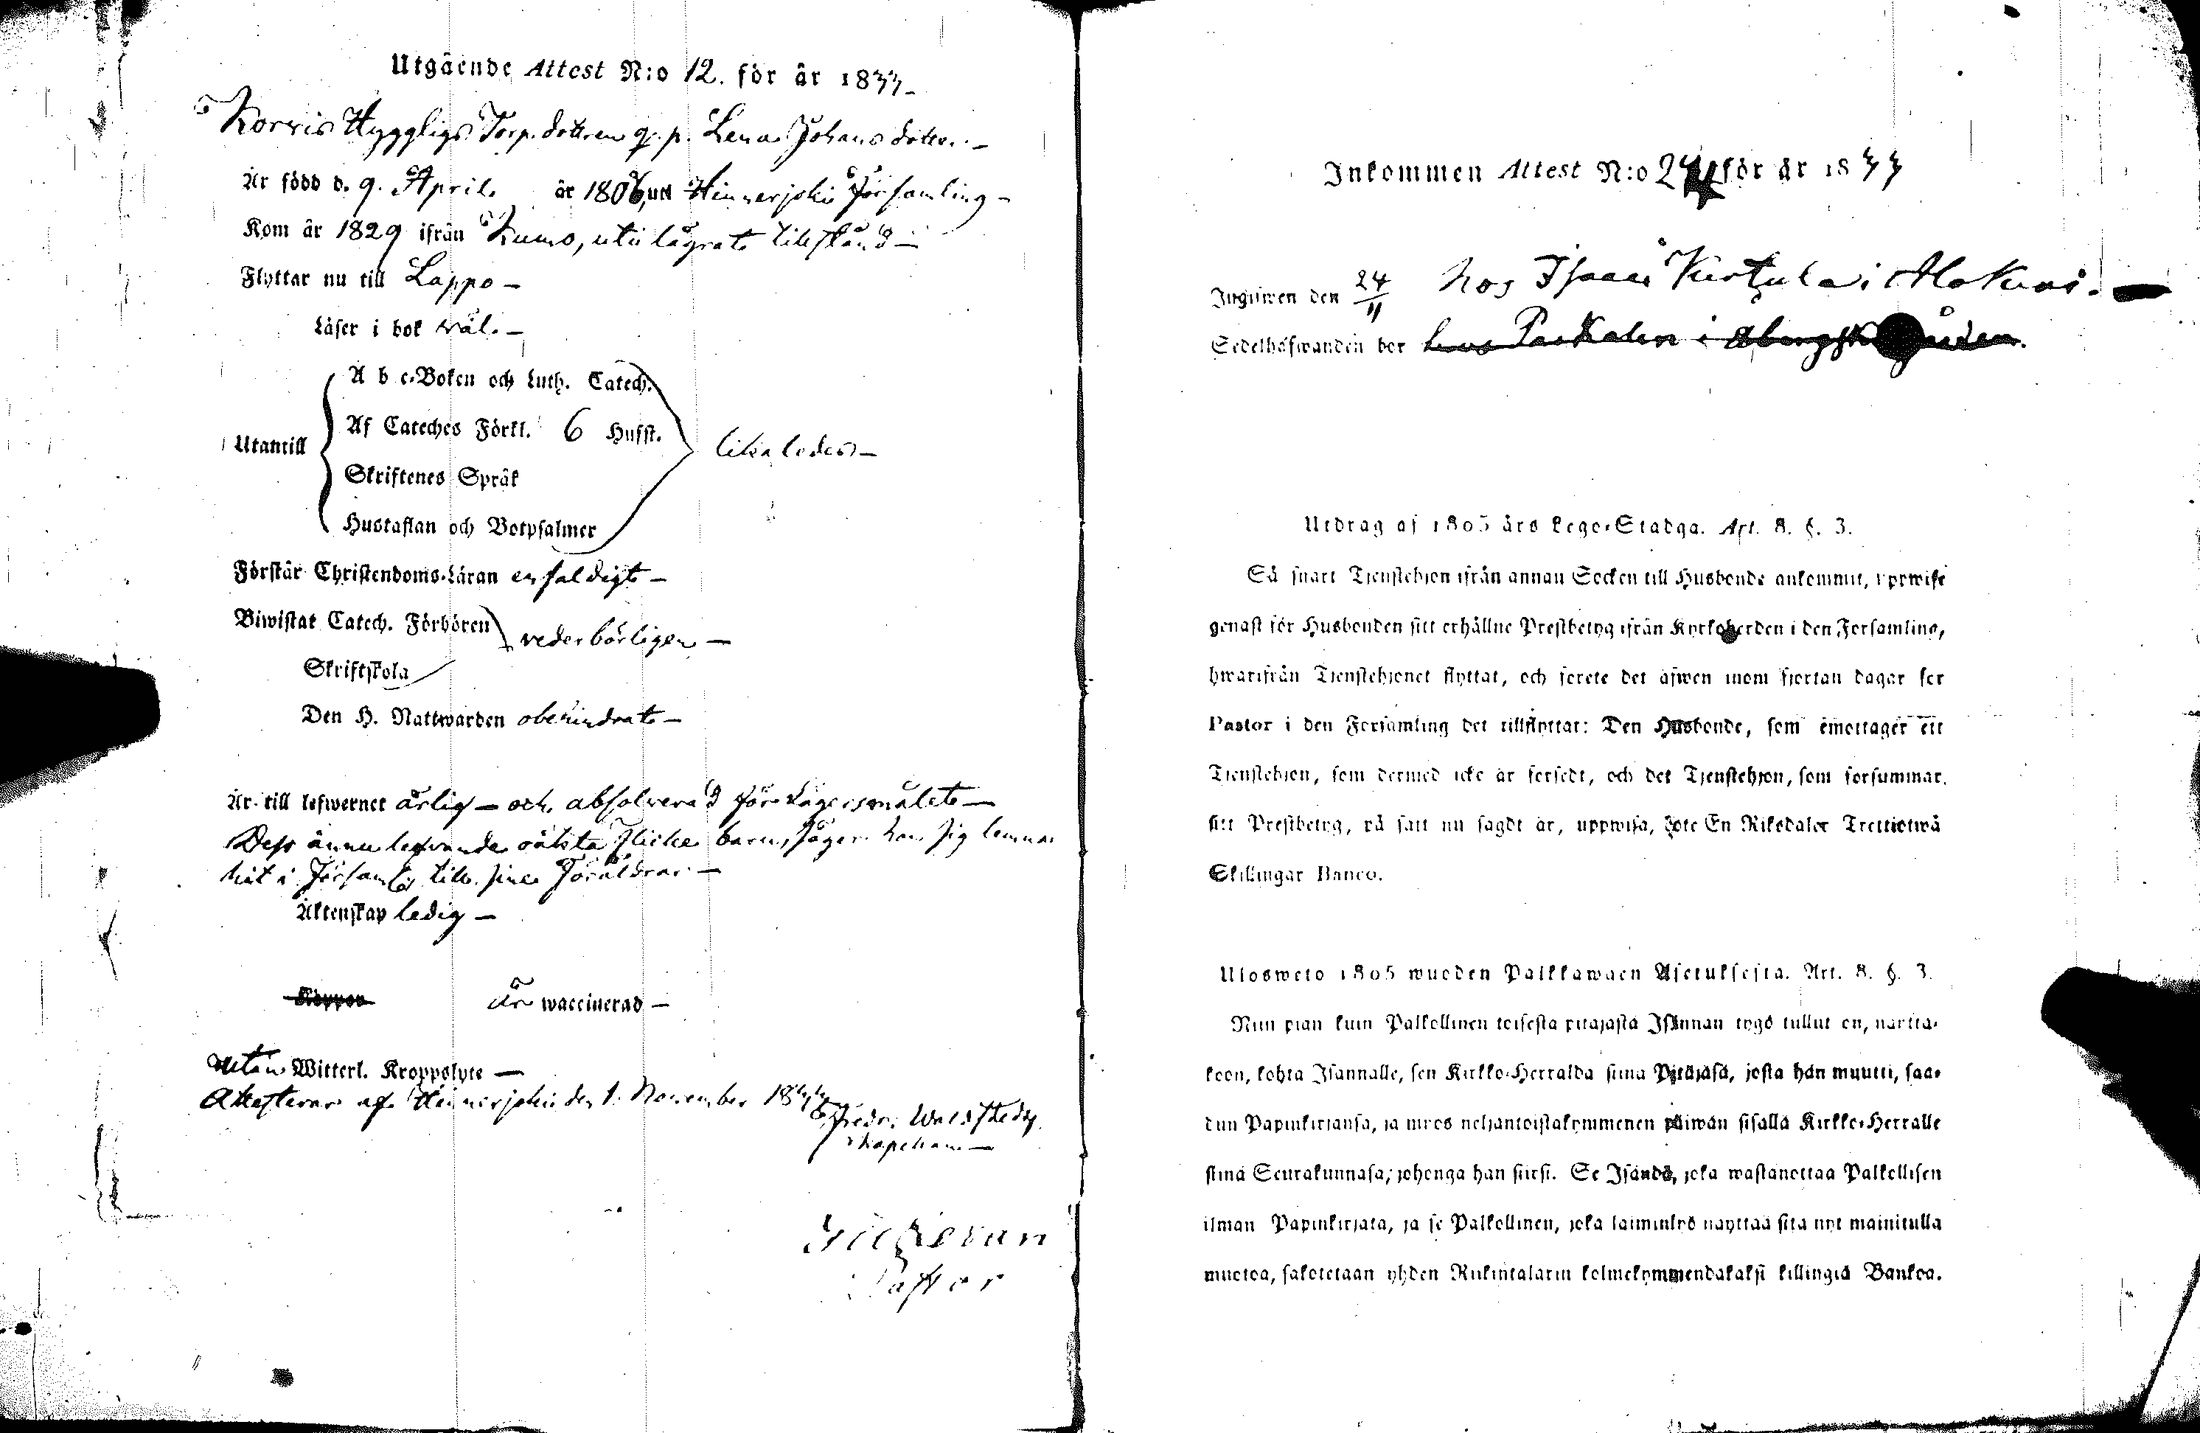 Utgående Attest N:o 12. för år 1833.
Korvis Hygglige Torp. dottren q. p. Lena Johans dotter. –
Är född d. 9. April. år 1806, uti Hinnerjoki Församling –
Kom år 1829 ifrån Kumo, uti lägrat tillstånd –
Flyttar nu till Lappo –
Läser i bok väl. –
Utantill
A b c-Boken och Luth. Catech.
Af Cateches Förkl. 6 Hufst.
Skriftenes Språk
Hustaflan och Botpsalmer
lika ledes –
Förstår Christendoms-Läran enfaldigt –
Biwistat Catech. Förhören
Skriftskola
vederbörligen –
Den H. Nattwarden obehindrat –
Är till lefwernet ärlig – och absolverad för Lägersmålet –
Dess ännu lefvande oäkta flicke barn, säger hon sig lemna
här i Församl. till sina Föräldrar –
Äktenskap ledig –
Koppor Är waccinerad –
utan Witterl. Kroppslyte –
Attesterar af Hinnerjoki den 1. November 1833
Fredr. Waldstedt
Kapellan –
Pastor
Inkommen Attest N:o 24 för år 1833
Ingifwen den 24/11 hos Isaac Kirtula i Alakus. –
Sedelhafwanden bor hos
Utdrag af 1805 års Lego-Stadga. Art. 8. §. 3.
Så snart Tjenstehjon ifrån annan Socken till Husbonde ankommit, uppwise
genast för Husbonden sitt erhållne Prestbetyg ifrån Kyrkoherden i den Församling,
hwarifrån Tjenstehjonet flyttat, och förete det äfwen inom fjortan dagar för
Pastor i den Församling det tillflyttat: Den Husbonde, som emottager ett
Tjenstehjon, som dermed icke är försedt, och det Tjenstehjon, som försummar,
sitt Prestbetyg, på sätt nu sagdt är, uppwisa, böte En Riksdaler Trettiotwå
Skillingar Banco.
Ulosweto 1805 wuoden Palkkawäen Asetuksesta. Art. 8. §. 3.
Niin pian kuin Palkollinen toisesta pitäjästä Isännän tygö tullut on, näyttä-
köön, kohta Isännälle, sen Kirkko-Herralda siinä Pitäjäsä, josta hän muutti, saa-
dun Papinkirjansa, ja myös neljäntoistakymmenen päiwän sisällä Kirkko-Herralle
siinä Seurakunnasa, johonga hän siirsi. Se Isändä, joka wastanottaa Palkollisen
ilman Papinkirjata, ja se Palkollinen, joka laiminlyö näyttää sitä nyt mainitulla
muotoa, sakotetaan yhden Riikintalarin kolmekymmendäkaksi killingiä Bankoa.